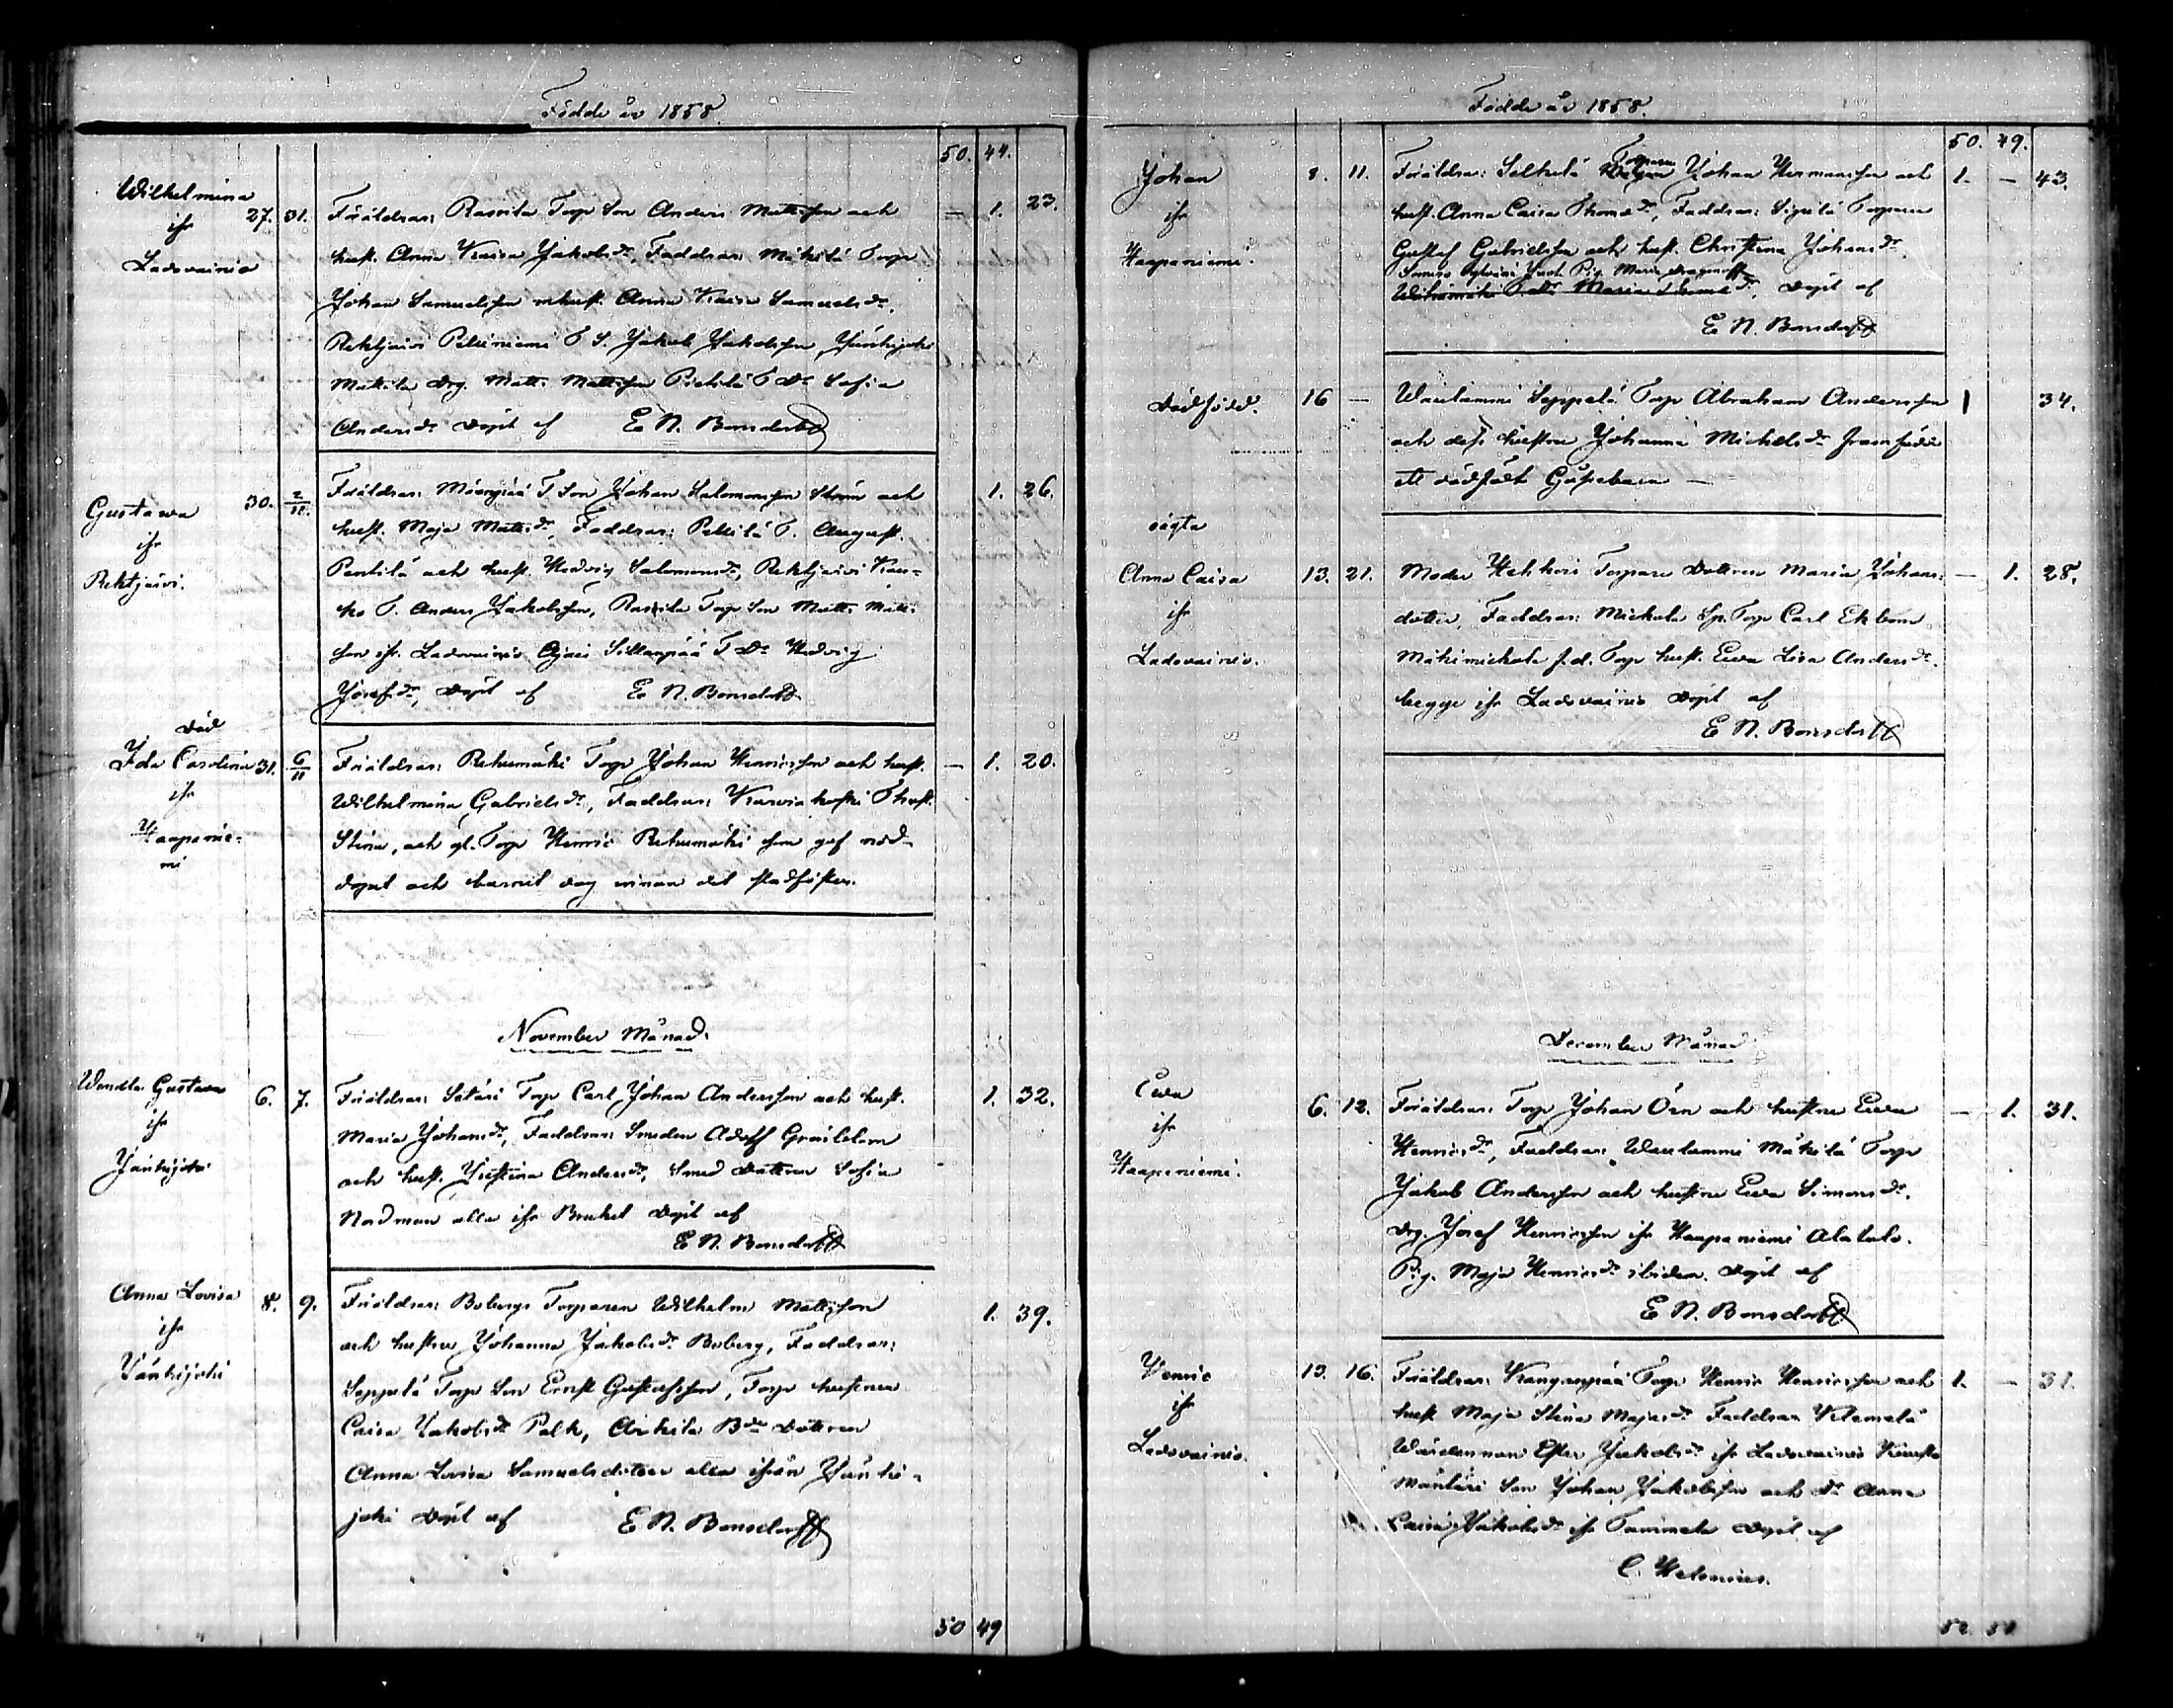 Födde år 1858.
50. 44.
Wilhelmina
ifr
Ladovainio
27. 31.
Föräldrar: Rasvila Torp Son Anders Mattsson och
hust. Anna Kaisa Jakobsdr, Faddrar: Mäkilä Torp
Johan Samuelsson m hust. Anna Kaisa Samuelsdr.
Rehtjärvi T S. Jakob Jakobsson, Jänhijoki
Mattila Drg. Matts Mattsson T Dr Sofia
Andersdr Döpt af E N. Bonsdorff
— 1. 23.
Gustawa
ifr
Rehtjärvi.
30. 2/11.
Föräldrar: T Son Johan Salomonsson och
hust. Maja Mattsdr, Faddrar: T. August
Pentilä och hust. Hedvig Salomonsdr, Rehtjärvi Kau-
ko T. Anders Jakobsson, Torp Son Matts Matts-
son ifr. Ladovainio Ojais Sillanpää T Dr Hedvig
Josefsdr, Döpt af E. N. Bonsdorff
1. 26.
Död
Ida Carolina
ifr
Haapanie-
mi
31. 6/11
Föräldrar: Rekumäki Torp Johan Henricsson och hust.
Wilhelmina Gabrielsdr, Faddrar: T hust.
Stina, och gl. Torp Henric Rekumäki som gaf nöd-
dopet och barnet dog innan det stadfästes.
— 1. 20.
November Månad.
Wendla Gustava
ifr
Jänhijoki
6. 7.
Föräldrar: Sätäri Torp Carl Johan Andersson och hust.
Maria Johansdr, Faddrar: Smeden Adolf
och hust. Justina Andersdr, Smed Dottren Sofia
Nordman alla ifr Bruket Döpt af
E N. Bonsdorff
1. 32.
Anna Lovisa
ifr
Jänhijoki
8. 9.
Föräldrar: Bobergs Torparen Wilhelm Mattsson
och hustru Johanna Jakobsdr Boberg, Faddrar:
Seppälä Torp Son Ernst Gustafsson, Torp hustrun
Caisa Jakobsdr Palk, Arkila Bde Dottren
Anna Lovisa Samuelsdotter alla ifrån Jänhi-
joki Döpt af E N. Bonsdorff
1. 39.
50 49
Födde år 1858.
50. 49.
Johan
ifr
Haapaniemi.
8. 11.
Torparen
Föräldrar: Selkilä Johan Hermansson och
hust. Anna Caisa Thomasdr, Faddrar: Torparen
Gustaf Gabrielsson och hust. Christina Johansdr.
Somero Pig. Maria
Maria Döpt af
E N. Bonsdorff
1. — 43.
Dödfödd.
16 —
Waulammi Seppälä Torp Abraham Andersson
och dess hustru Johanna Michelsdr framfödde
ett dödfödt Gossebarn —
1 34.
oägta
Anna Caisa
ifr
Ladovainio.
13. 21.
Moder Torpare Dottren Maria Johans-
dotter, Faddrar: Mickola Sp. Torp Carl Ekbom
Mäkimickola f.d. Torp hust. Ewa Lisa Andersdr.
begge ifr Ladovainio Döpt af
E N. Bonsdorff
— 1. 28.
December Månad
Ewa
ifr
Haapaniemi.
6. 12.
Föräldrar: Torp Johan Örn och hustru Ewa
Henricsdr, Faddrar: Waulammi Mäkilä Torp
Jakob Andersson och hustru Ewa Simonsdr.
Drg. Josef Henricsson ifr Haapaniemi Alatalo.
Pig. Maja Henricsdr ibidem. Döpt af
E N. Bonsdorff
— 1. 31.
Henric
ifr
Ladovainio.
13. 16.
Föräldrar: Kangaspää Torp Henric Henricsson och
hust Maja Stina Majasdr. Faddrar
Ester Jakobsdr ifr Ladovainio
Mäntäri Son Johan Jakobsson och Dr Anna
Caisa Jakobsdr ifr Tammela Döpt af
C. Helenius.
1. — 31.